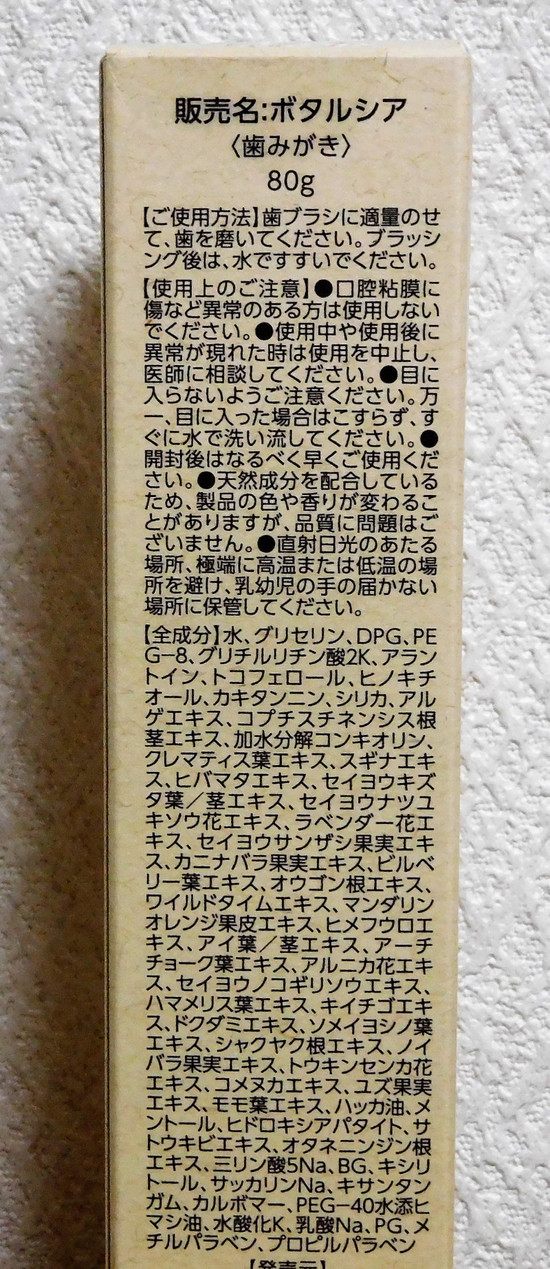 販売名:ボタルシア
〈歯みがき〉
80g
【ご使用方法】歯ブラシに適量のせ
て、歯を磨いてください。ブラッシ
ング後は、水ですすいでください。
【使用上のご注意】●口腔粘膜に
傷など異常のある方は使用しない
でください。●使用中や使用後に
異常が現れた時は使用を中止し、
医師に相談してください。●目に
入らないようご注意ください。万
一、目に入った場合はこすらず、す
ぐに水で洗い流してください。●
開封後はなるべく早くご使用くだ
さい。●天然成分を配合している
ため、製品の色や香りが変わるこ
とがありますが、品質に問題はご
ざいません。●直射日光のあたる
場所、極端に高温または低温の場
所を避け、乳幼児の手の届かない
場所に保管してください。
【全成分】水、グリセリン、DPG、PE
G-8、グリチルリチン酸2K、アラン
トイン、トコフェロール、ヒノキチ
オール、カキタンニン、シリカ、アル
ゲエキス、コプチスチネンシス根
茎エキス、加水分解コンキオリン、
クレマティス葉エキス、スギナエキ
ス、ヒバマタエキス、セイヨウキズ
タ葉/茎エキス、セイヨウナツユ
キソウ花エキス、ラベンダー花エ
キス、セイヨウサンザシ果実エキ
ス、カニナバラ果実エキス、ビルベ
リー葉エキス、オウゴン根エキス、
ワイルドタイムエキス、マンダリン
オレンジ果皮エキス、ヒメフウロエ
キス、アイ葉/茎エキス、アーチ
チョーク葉エキス、アルニカ花エキ
ス、セイヨウノコギリソウエキス、
ハマメリス葉エキス、キイチゴエキ
ス、ドクダミエキス、ソメイヨシノ葉
エキス、シャクヤク根エキス、ノイ
バラ果実エキス、トウキンセンカ花
エキス、コメヌカエキス、ユズ果実
エキス、モモ葉エキス、ハッカ油、メ
ントール、ヒドロキシアパタイト、サ
トウキビエキス、オタネニンジン根
エキス、三リン酸5Na、BG、キシリ
トール、サッカリンNa、キサンタン
ガム、カルボマー、PEG-40水添ヒ
マシ油、水酸化K、乳酸Na、PG、メ
チルパラベン、プロピルパラベン
【発売元】